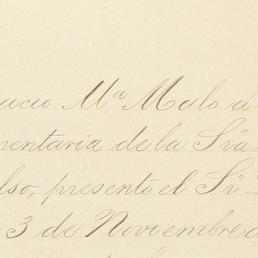 nacio Mª Malo á
mentaria de la Srã
lso, presento el Sr̃
3 de Noviembre d